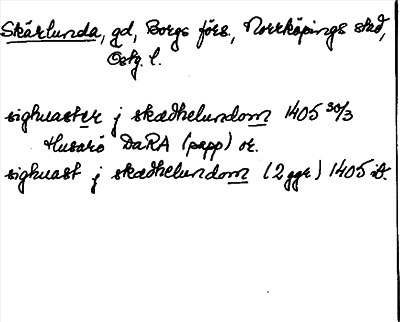 Skärlunda, gd, Borgs förs., Norrköpings stad,
Östg. l.
sighuaster j skædhelundom 1405 30/3
Husarö DaRA (papp) or.
sighuast j skædhelundom (2 ggr) 1405 ib.